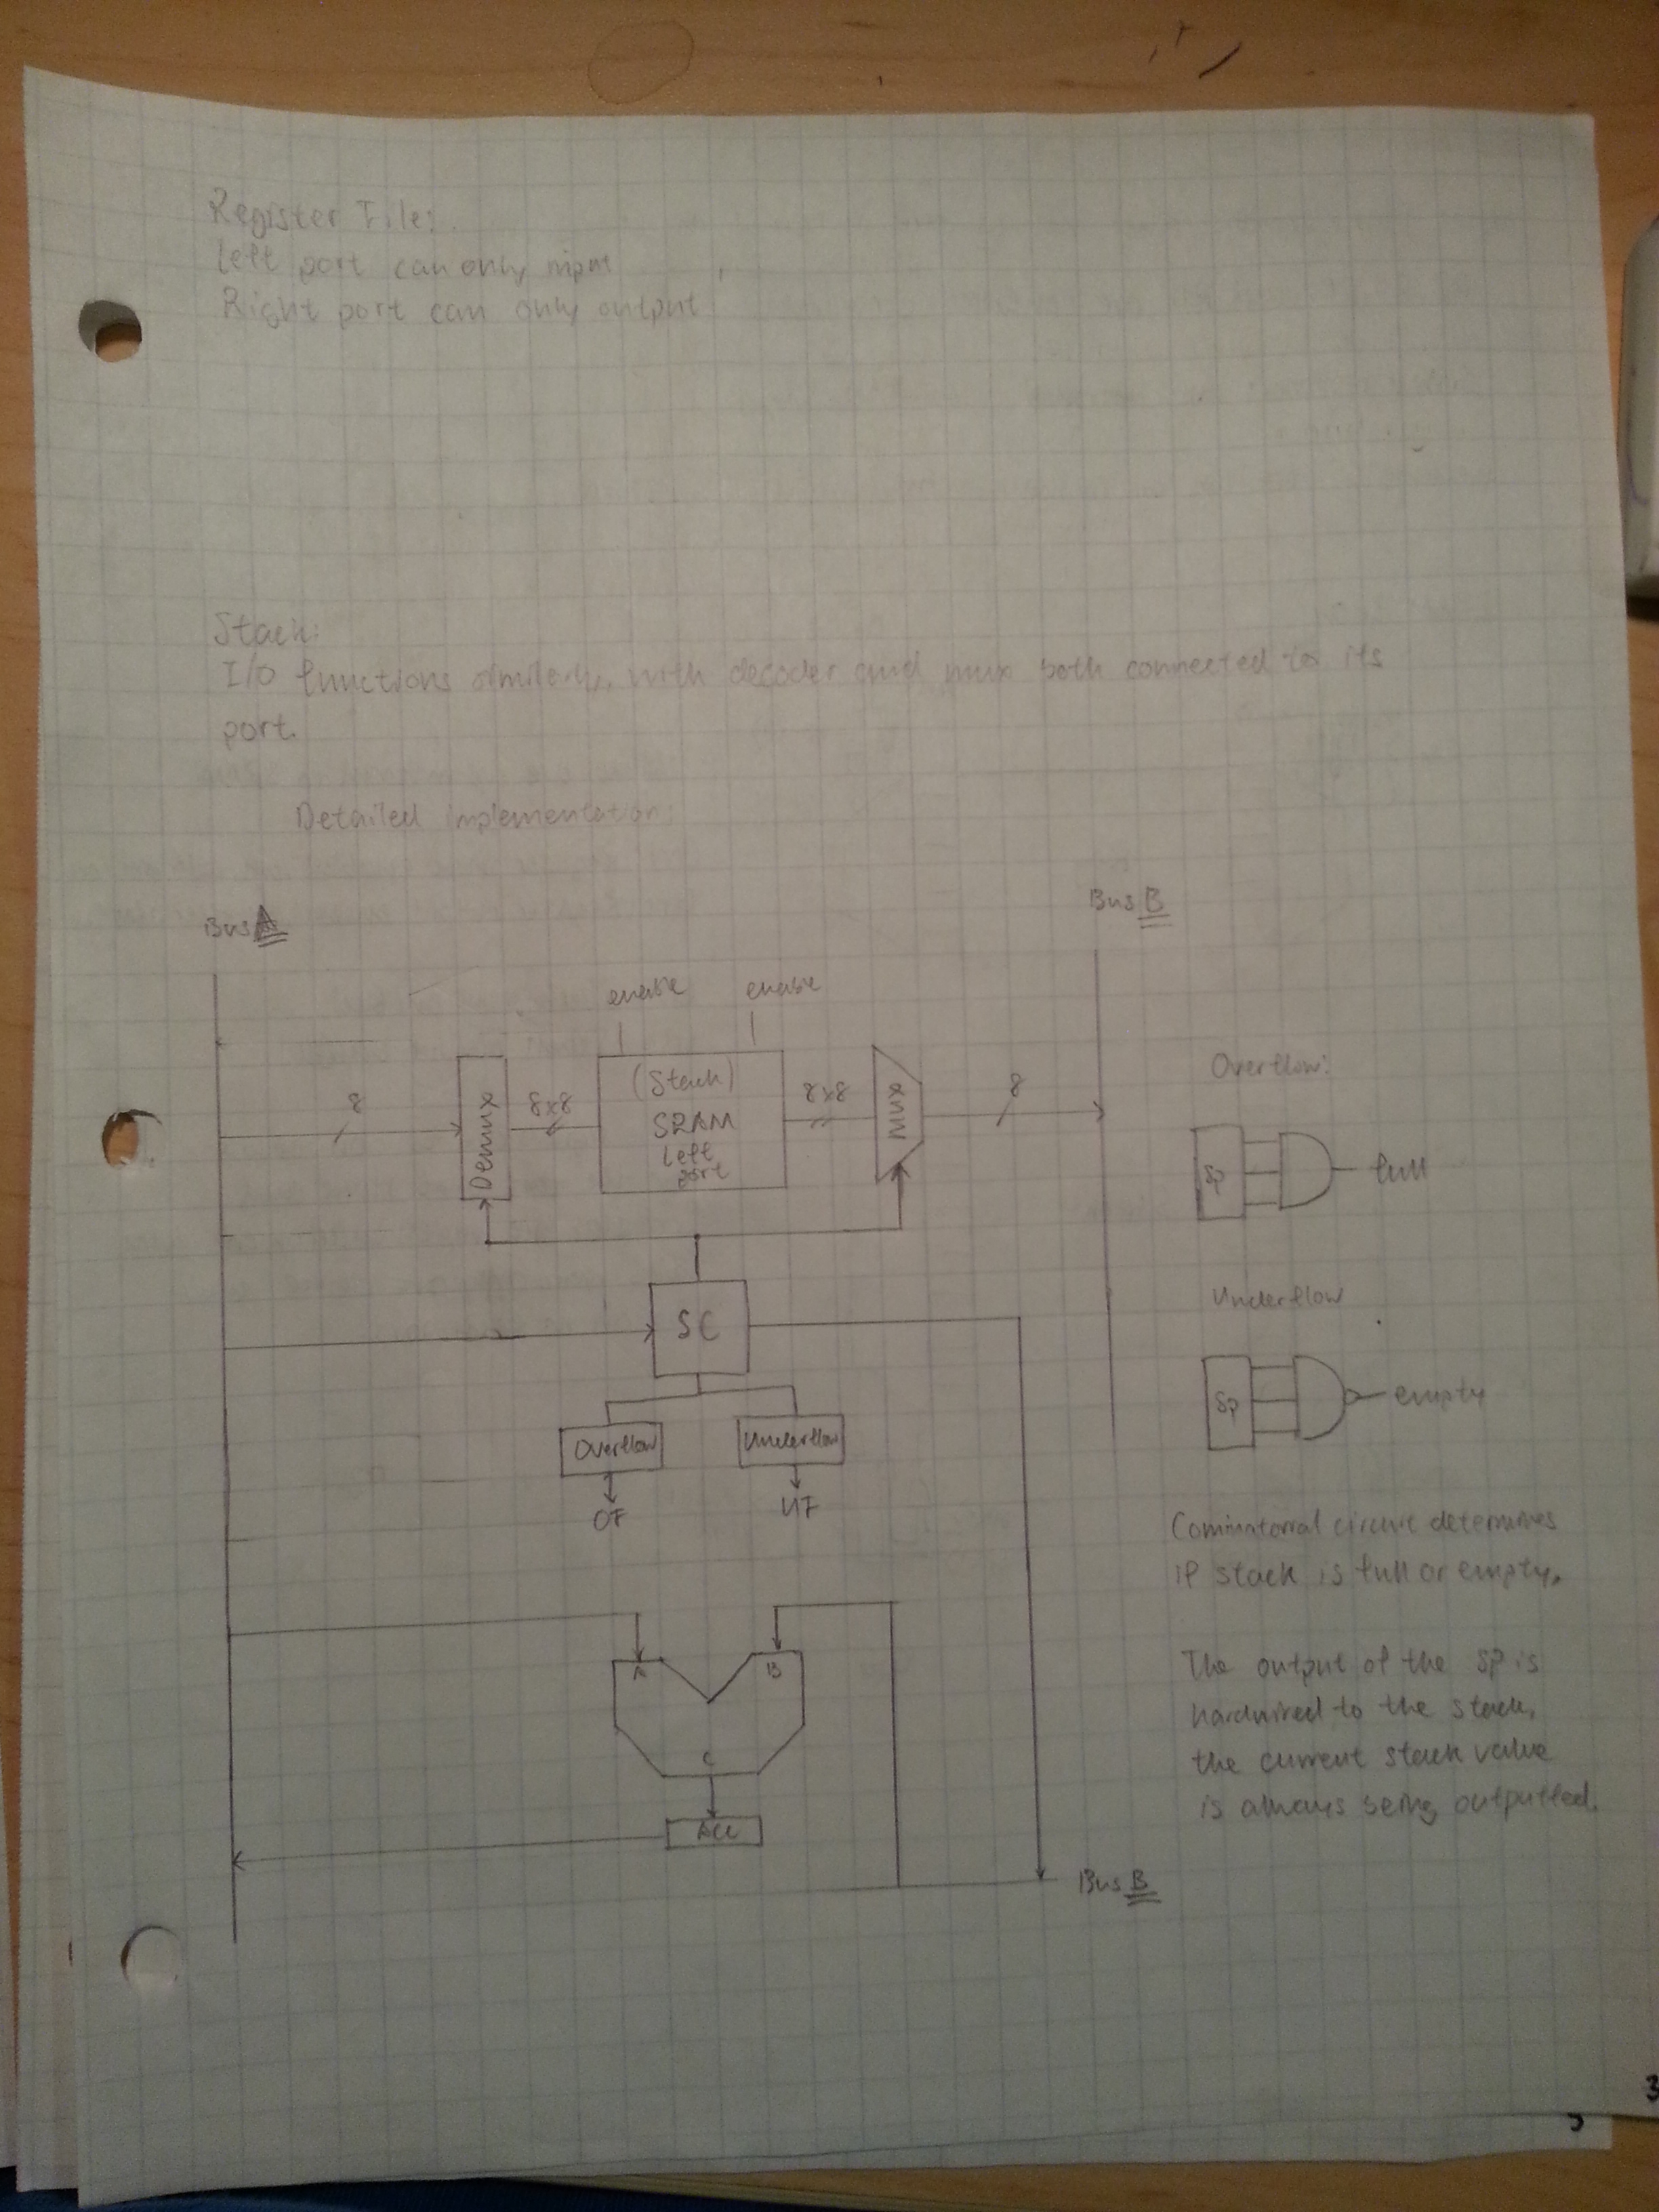 Register File:
Left port can only input
Right port can only output
Stack:
I/O functions similarly, with decoder and mux both connected to its
port.
Detailed implementation:
Bus A
Bus B
enable enable
8
Demux
8x8
(Stack)
SRAM
Left
port
8x8
Mux
8
Overflow:
Sp
full
SC
Underflow
Sp
empty
Overflow
Underflow
OF
UF
Cominatorral circuit determines
if stack is full or empty.
A
B
C
Acc
The output of the SP is
hardwired to the stack,
the current stack value
is always being outputted.
Bus B
3